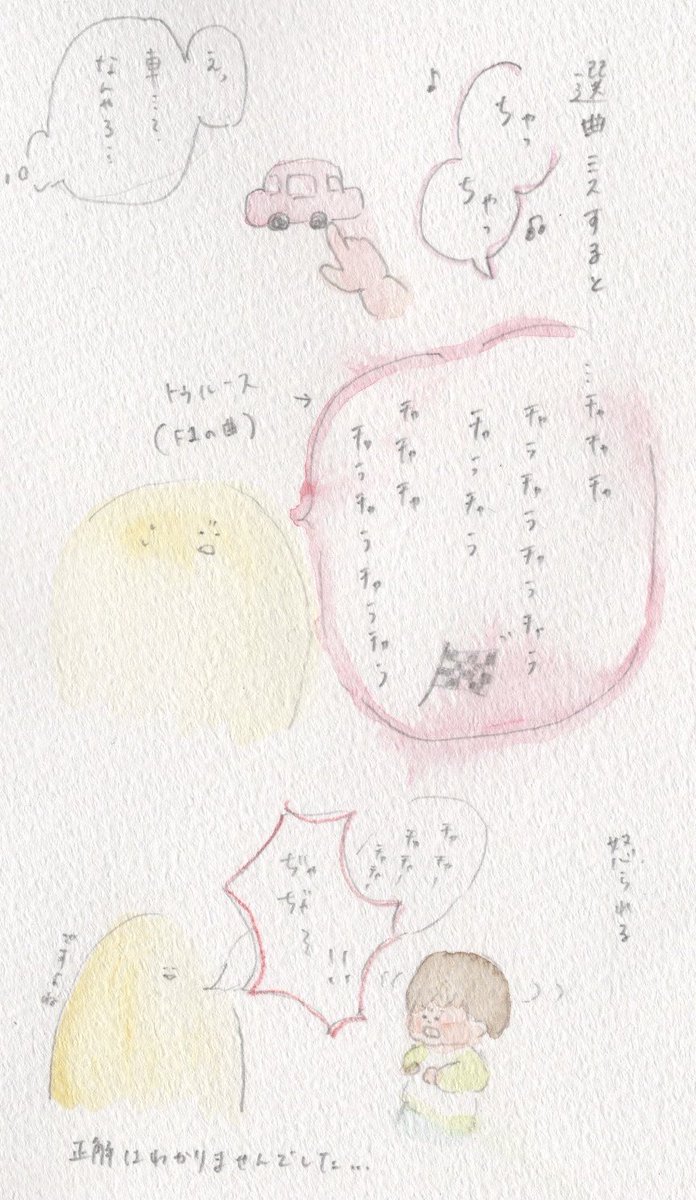 選曲ミスすると
ちゃっ
ちゃっ
え、
車って
なんやろ…
…チャチャチャ
チャラチャラチャラチャラ
チャラチャラ
チャチャチャ
チャラチャラチャラチャラ
トゥルース
(F1の曲)
怒られる
チャチャ!
チャチャ!
チャチャ!
ぢゃぢゃる!!
正解はわかりませんでした...